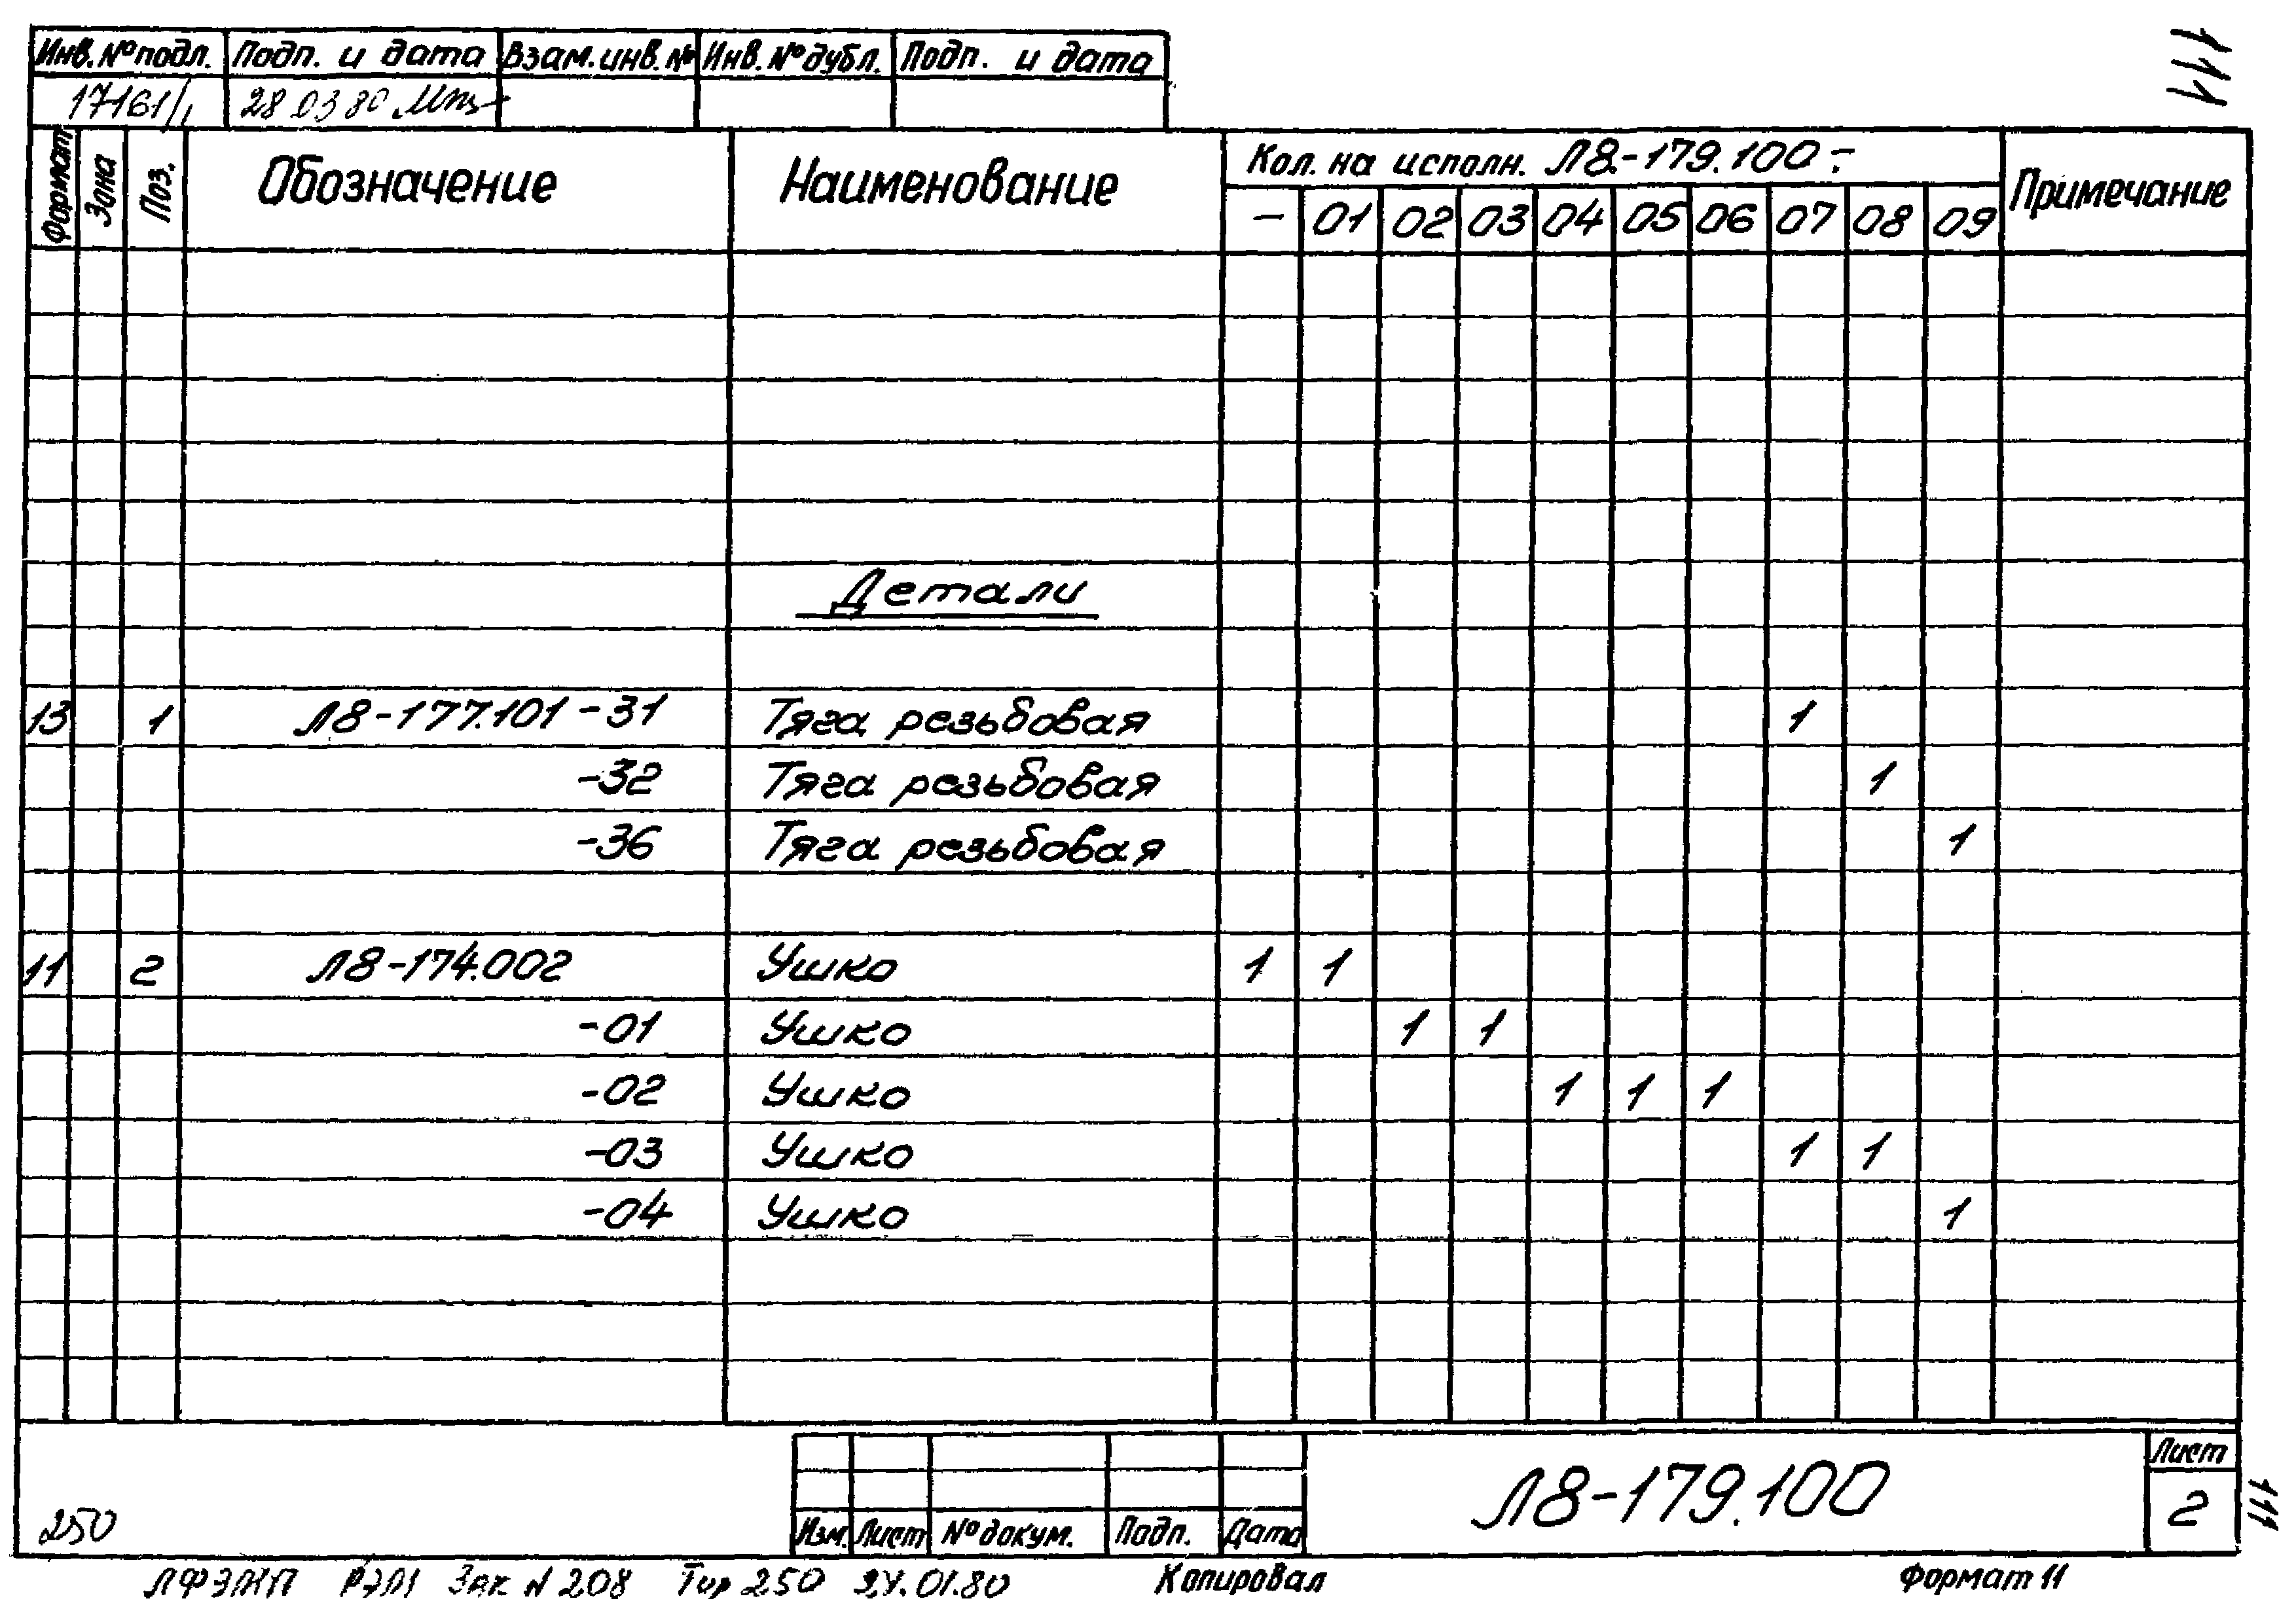 111
Инв.№подл. Подп. и дата Взам.инв.№ Инв.№дубл. Подп. и дата
17161/1 28 03 80
Формат Зона Поз. Обозначение Наименование Кол. на исполн. Л8-179.100-: Примечание
- 01 02 03 04 05 06 07 08 09
Детали
13 1 Л8-177.101-31 Тяга резьбовая 1
-32 Тяга резьбовая 1
-36 Тяга резьбовая 1
11 2 Л8-174.002 Ушко 1 1
-01 Ушко 1 1
-02 Ушко 1 1 1
-03 Ушко 1 1
-04 Ушко 1
Л8-179.100
Лист
2
111
250
Изм. Лист №докум. Подп. Дата
Зак N 208 Тир 250 24.01.80 Копировал Формат 11